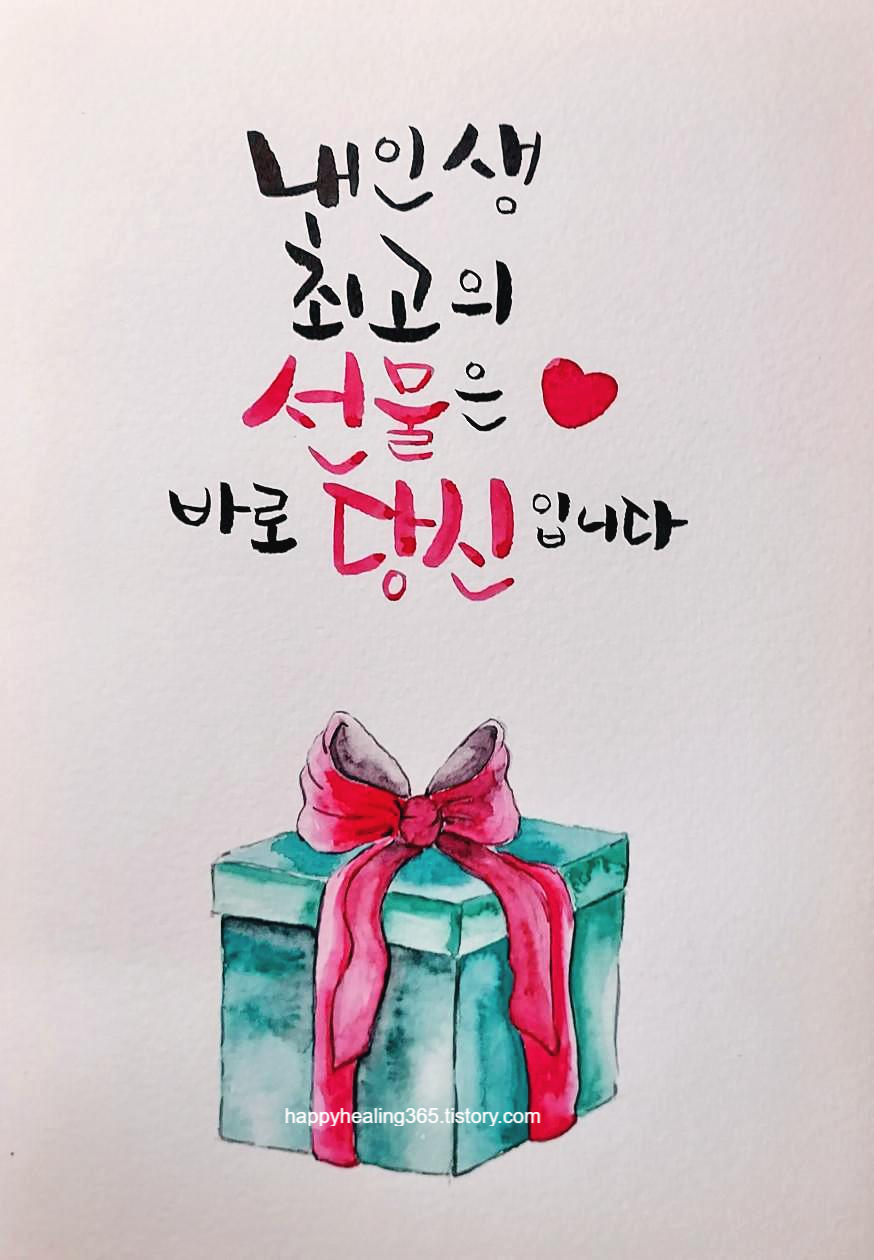 내 인생
최고의
선물은
바로 당신입니다
happyhealing365.tistory.com